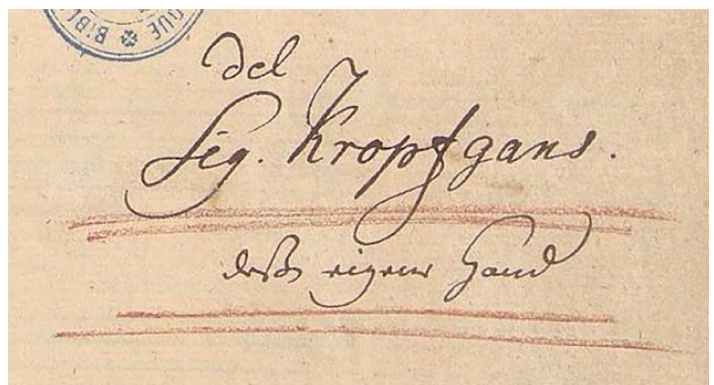 BIBL
QUE
del
Sig. Kropfgans.
deßen eigene Hand